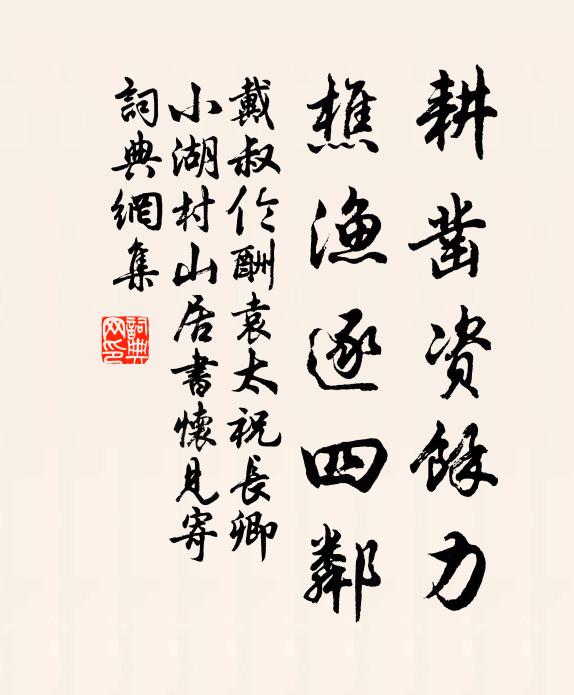 耕凿资馀力
樵渔逐四鄰
戴叔伦酬袁太祝長卿
小湖村山居書懷見寄
詞典網集
詞典網印